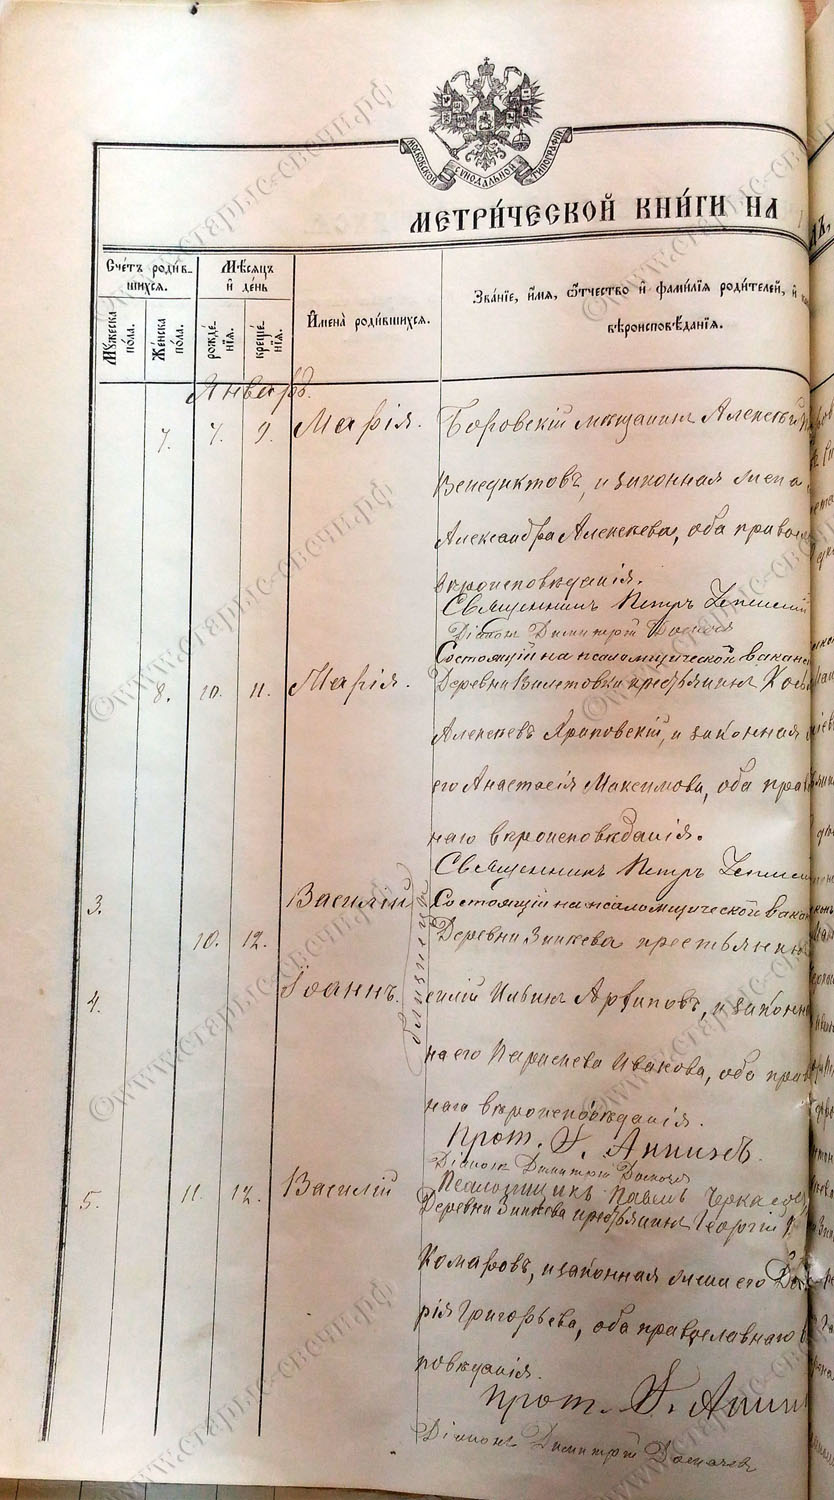 МОСКОВСКОЙ СѴНОДАЛЬНОЙ ТИПОГРАФІИ
МЕТРИ́ЧЕСКОЙ КНИ́ГИ НА
Сче́тъ роди́в-
шихся.
Мѣ́сяцъ
и̂ де́нь
Му́жеска
по́ла.
Же́нска
по́ла.
рожде́-
нїѧ.
креще́-
нїѧ.
И̂мена̀ роди́вшихся.
Зва́нїе, и̂́мя, о̂́тчество и̂ фами́лїя роди́телей, и̂
вѣроисповѣ́данїя.
Январь.
7. 7. 9. Марія. Боровскій мѣщанинъ Алексѣй
Венедиктовъ, и законная жена
Александра Алексѣева, оба правос
вѣроисповѣданія.
Священникъ Петръ
Діаконъ Димитрій
Состоящій на псаломщической ваканс
8. 10. 11. Марія. Деревни крестьянинъ
Алексѣевъ и законная
его Анастасія Максимова, оба прав
наго вѣроисповѣданія.
Священникъ Петръ
3. Василій Состоящій на псаломщической вакан
10. 12. Деревни Зинкева крестьянинъ
4. Іоаннъ. близнецы силій Ильинъ Архиповъ, и законн
на его Параскева Иванова, оба прав
наго вѣроисповѣданія.
Прот.
Діаконъ Димитрій
Псаломщикъ Павелъ
5. 11. 12. Василій Деревни Зинкева крестьянинъ Георгій
Комаровъ, и законная жена его
рія Григорьева, оба православнаго
повѣданія.
Прот.
Діаконъ Димитрій
©www.старые-свечи.рф